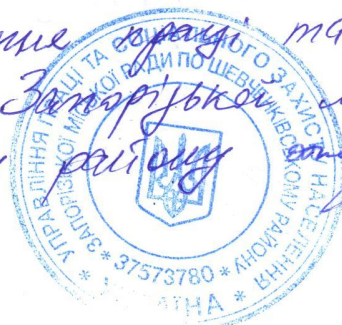 праці та
Запорізької м
району
* УПРАВЛІННЯ ПРАЦІ ТА СОЦІАЛЬНОГО ЗАХИСТУ НАСЕЛЕННЯ *
ЗАПОРІЗЬКОЇ МІСЬКОЇ РАДИ ПО ШЕВЧЕНКІВСЬКОМУ РАЙОНУ
* 37573780 *
УКРАЇНА